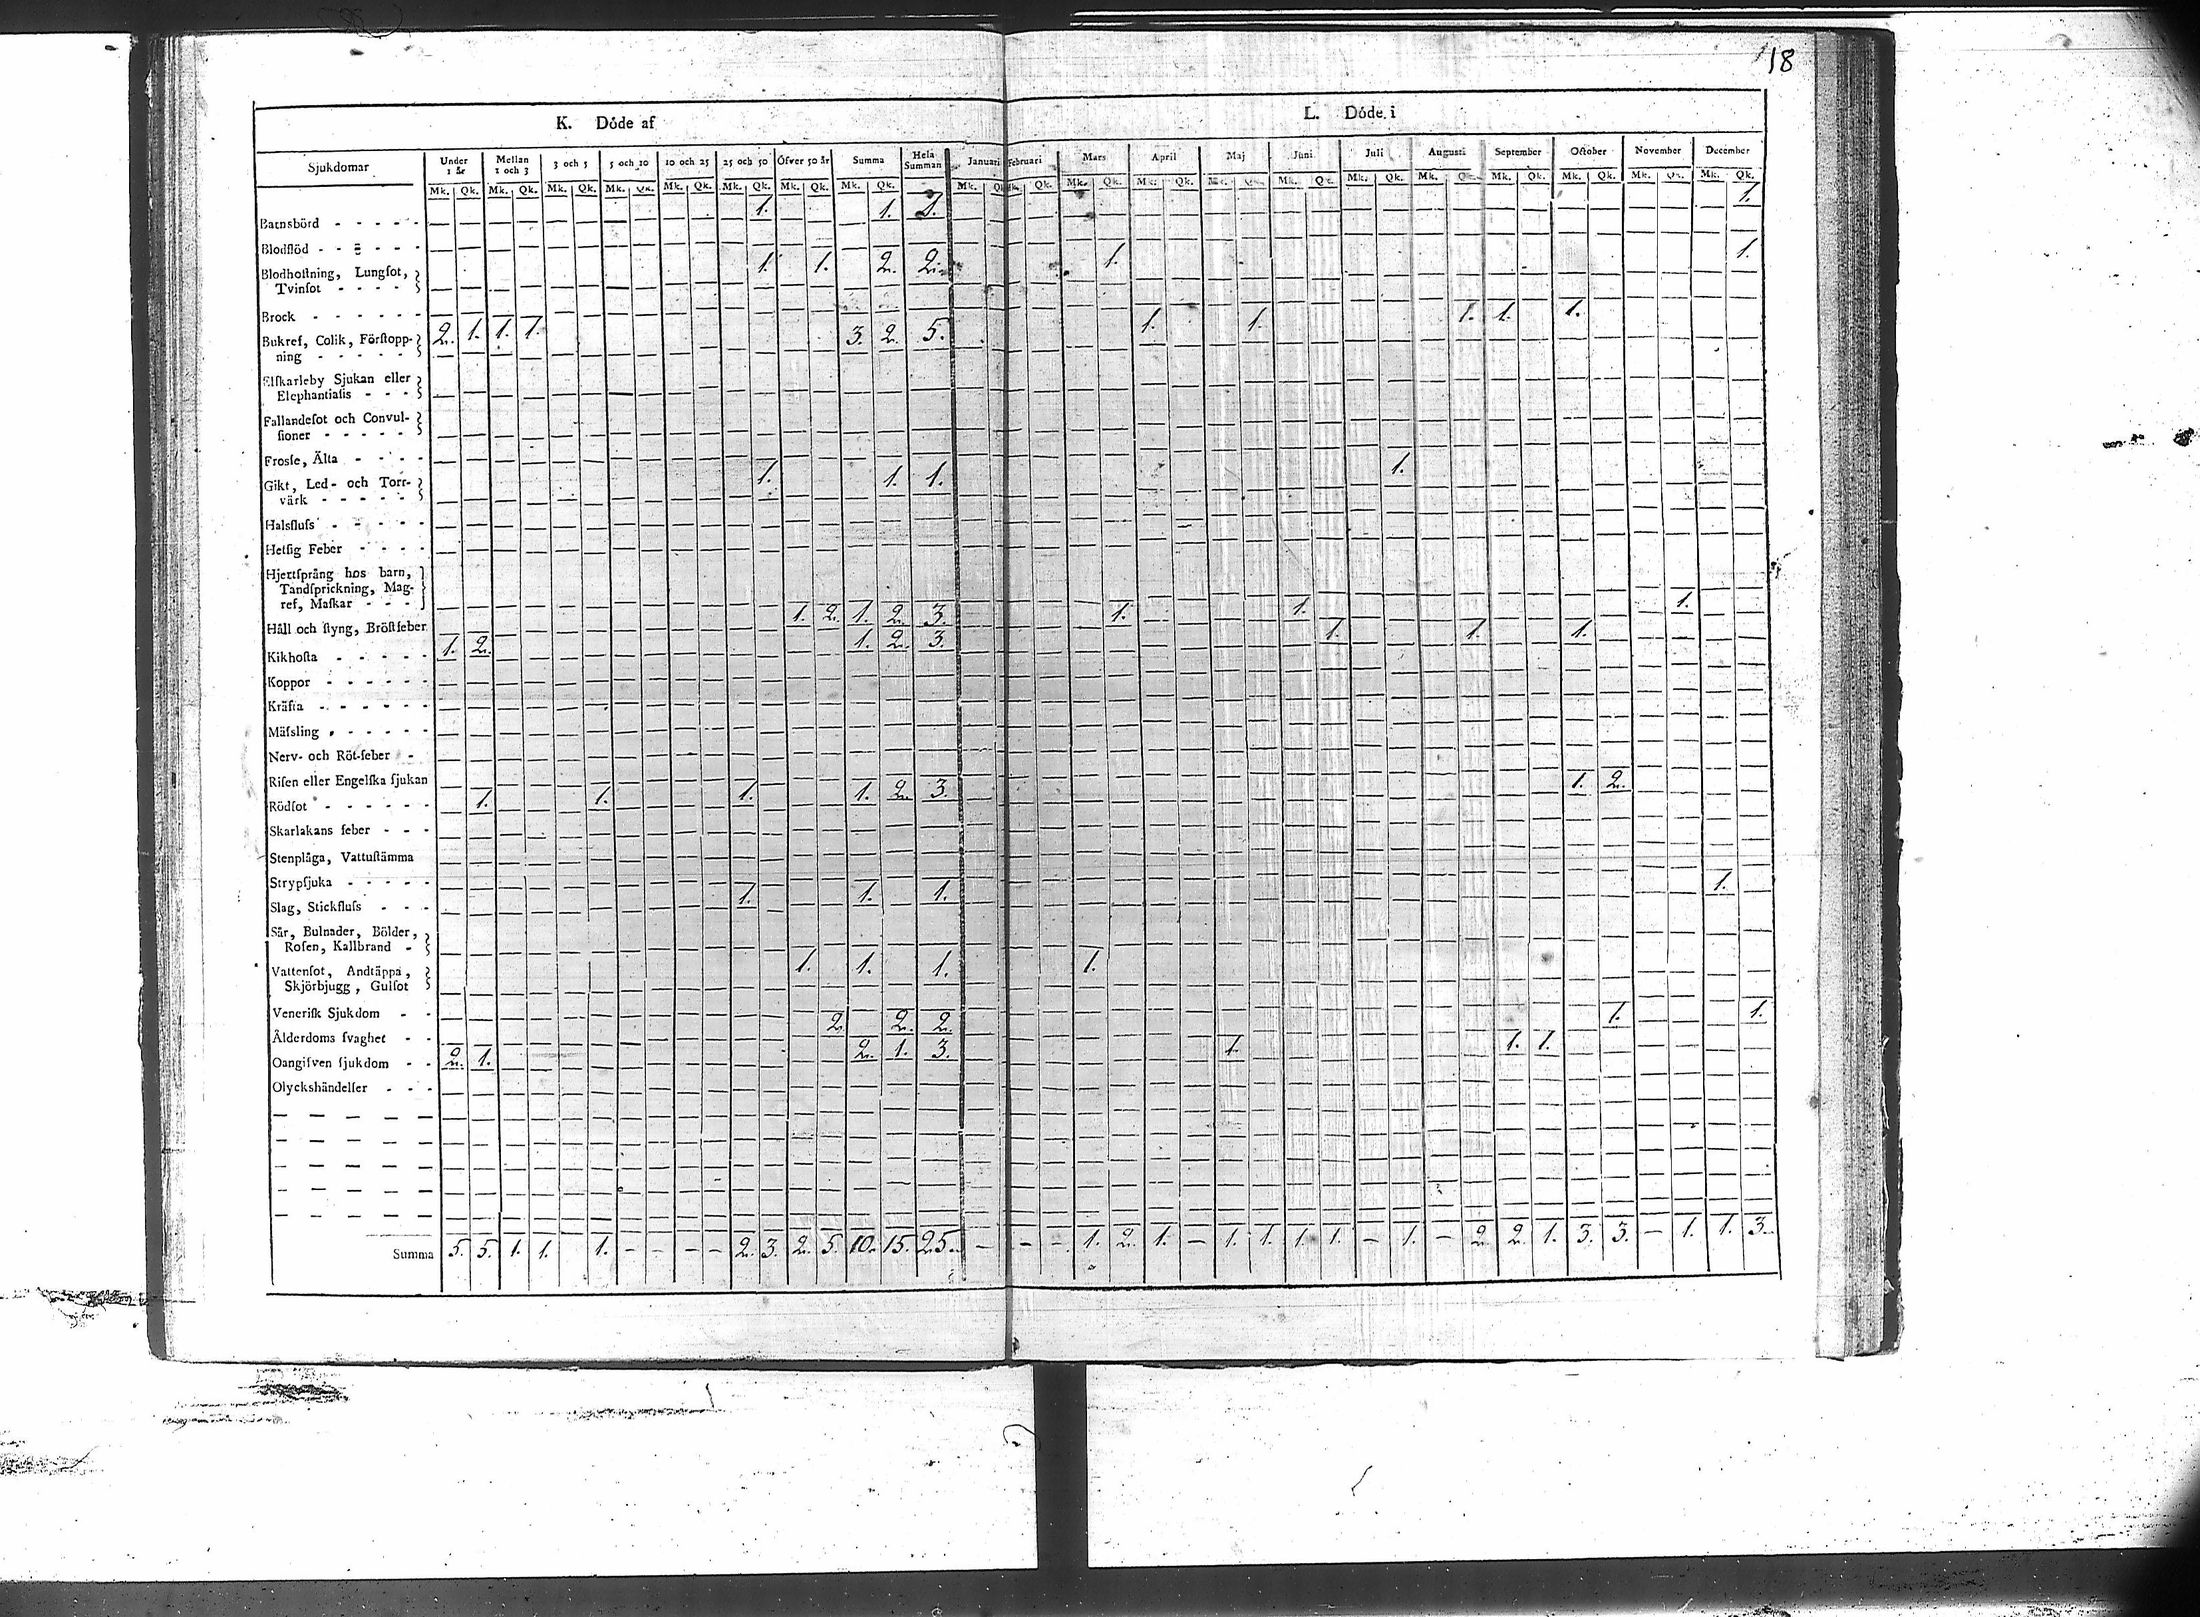 18
K. Döde af
L. Döde i
Sjukdomar Under 1 år Mellan 1 och 3 3 och 5 5 och 10 10 och 25 25 och 50 Öfver 50 år Summa Hela Summan Januari Februari Mars April Maj Juni Juli Augusti September October November December
Mk. Qk. Mk. Qk. Mk. Qk. Mk. Qk. Mk. Qk. Mk. Qk. Mk. Qk. Mk. Qk. Mk. Qk. Mk. Qk. Mk. Qk. Mk. Qk. Mk. Qk. Mk. Qk. Mk. Qk. Mk. Qk. Mk. Qk. Mk. Qk. Mk. Qk. Mk. Qk.
Barnsbörd - - - - - 1. 1. 1. 1.
Blodflöd - - - - -
Blodhostning, Lungsot, Tvinsot - - - - 1. 1. 2. 2. 1. 1.
Brock - - - - - -
Bukref, Colik, Förstoppning - - - - - 2. 1. 1. 1. 3. 2. 5. 1. 1. 1. 1. 1.
Elfkarleby Sjukan eller Elephantiasis - - -
Fallandesot och Convulsioner - - - - -
Frossa, Älta - - - -
Gikt, Led- och Torrvärk - - - - - 1. 1. 1. 1.
Halsfluss - - - - -
Hetsig Feber - - - -
Hjertsprång hos barn, Tandsprickning, Magref, Maskar - - -
Håll och styng, Bröstfeber 1. 2. 1. 2. 3. 1. 1. 1.
Kikhosta - - - - - 1. 2. 1. 2. 3. 1. 1. 1.
Koppor - - - - - -
Kräfta - - - - - -
Mässling - - - - - -
Nerv- och Röt-feber - -
Risen eller Engelska sjukan
Rödsot - - - - - - 1. 1. 1. 1. 2. 3. 1. 2.
Skarlakans feber - - -
Stenplåga, Vattustämma
Strypsjuka - - - - -
Slag, Stickfluss - - - 1. 1. 1. 1.
Sår, Bulnader, Bölder, Rosen, Kallbrand -
Vattensot, Andtäppa, Skjörbjugg, Gulsot 1. 1. 1. 1.
Venerisk Sjukdom - -
Ålderdoms svaghet - - 2. 2. 2. 1. 1.
Oangifven sjukdom - - 2. 1. 2. 1. 3. 1. 1. 1.
Olyckshändelser - - -
Summa 5. 5. 1. 1. 1. - - - - 2. 3. 2. 5. 10. 15. 25. - - - 1. 2. 1. - 1. 1. 1. 1. - 1. - 2. 2. 1. 3. 3. - 1. 1. 3.